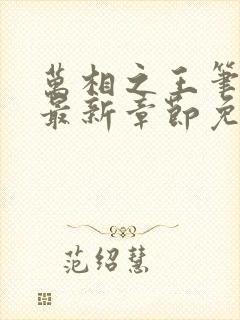 萬相之王筆
最新章節免
范绍慧